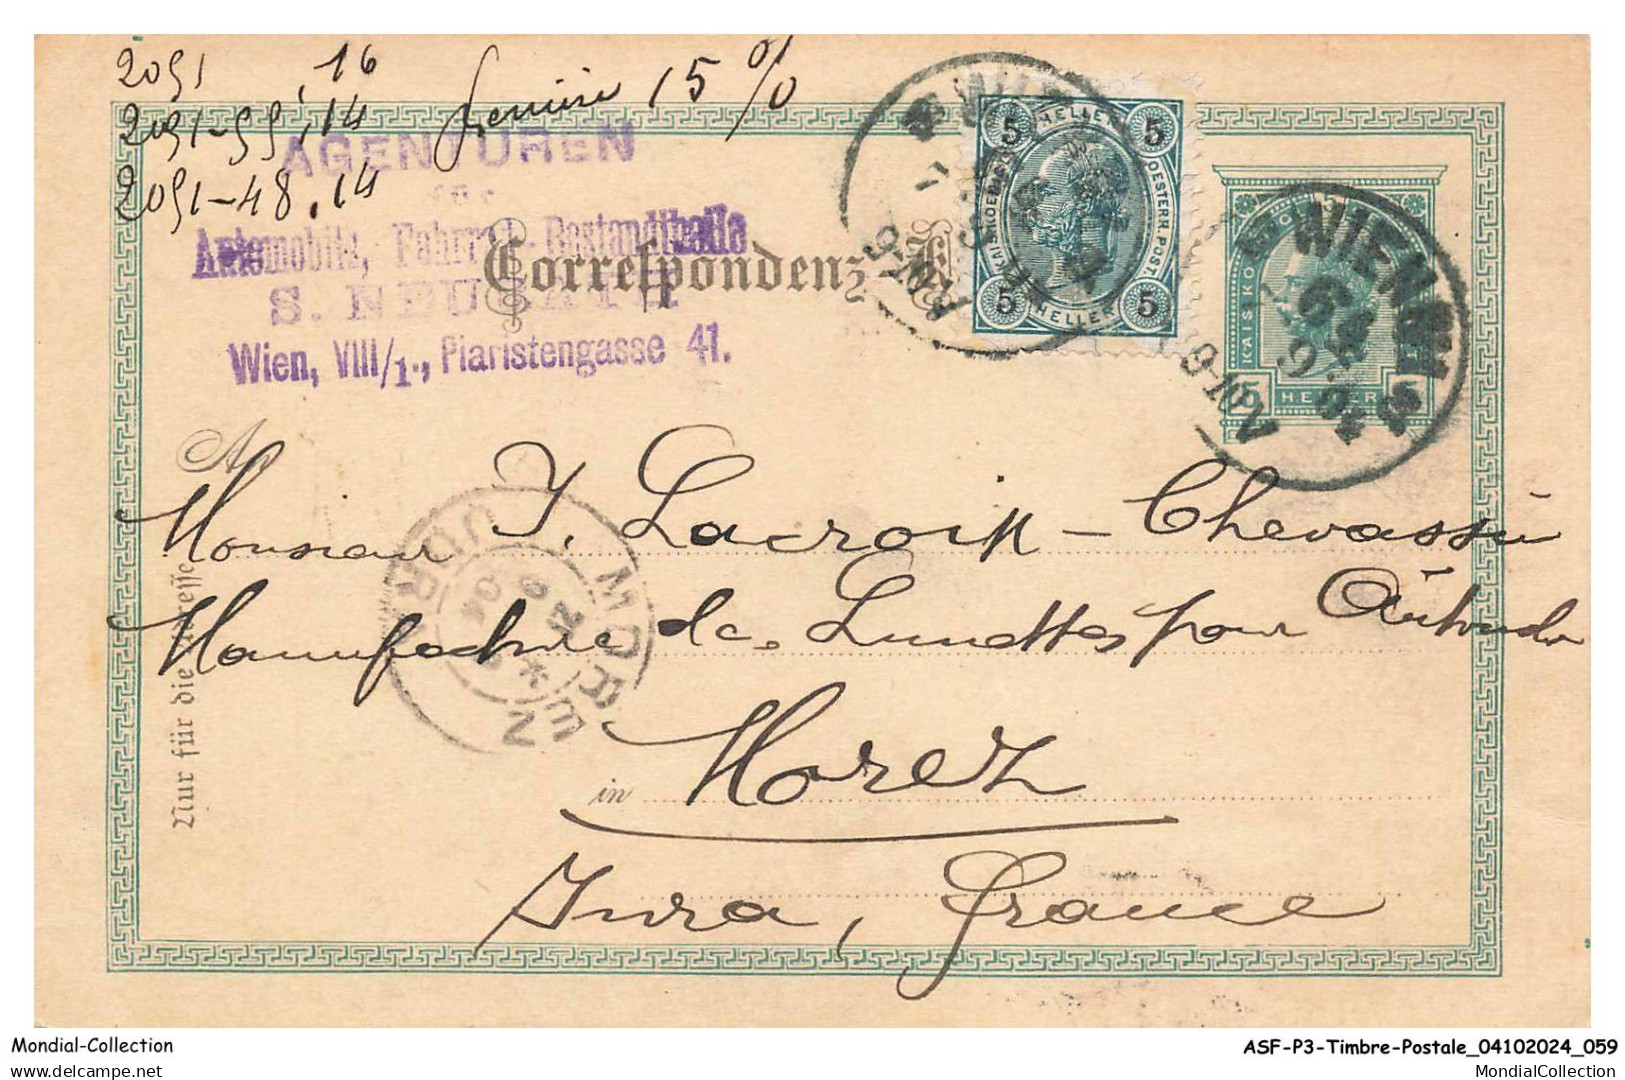 2091 , 16
2091-99, 14 remise 15 %
2091-48, 14
AGENTUREN
für
Automobile, Fahrrad-Bestandtheile
S. NEU
Wien, VIII/1., Piaristengasse 41.
Correspondenz-
5 HELLER 5
OESTERR. POST.
5 HELLER 5
WIEN
9-10V
WIEN
9-10V
5 HELLER
An
Monsieur J. Lacroix-Chevassu
Manufacture de Lunettes pour
MOREZ
JURA
04
in Morez
Jura, France
Nur für die Adresse
Mondial-Collection
delcampe.net
ASF-P3-Timbre-Postale_04102024_059
MondialCollection